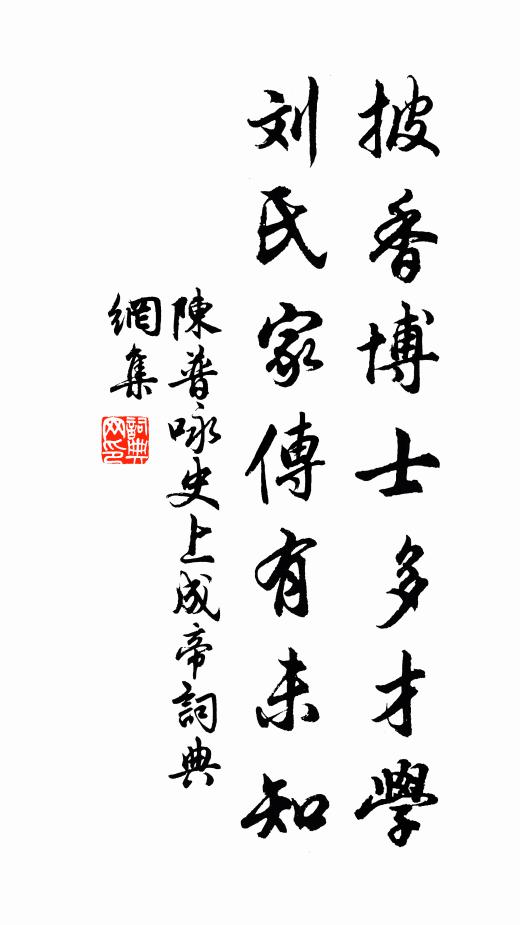 披香博士多才學
刘氏家傳有未知
陳普咏史上成帝詞典
網集
詞典网印